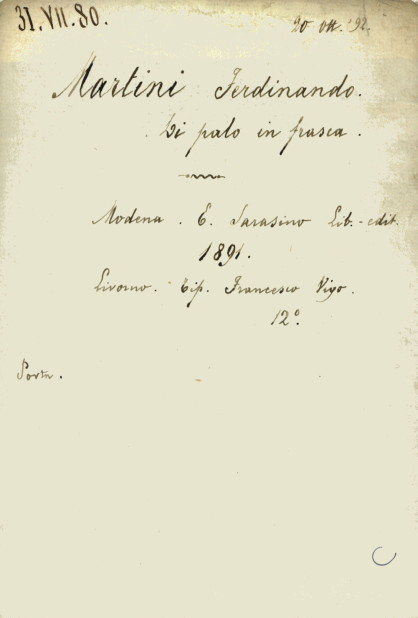 31.VII.80.
20 ott. '92.
Martini Ferdinando.
Di palo in frasca.
Modena. E. Sarasino Lib.-edit.
1891.
Livorno. Tip. Francesco Vigo.
12°.